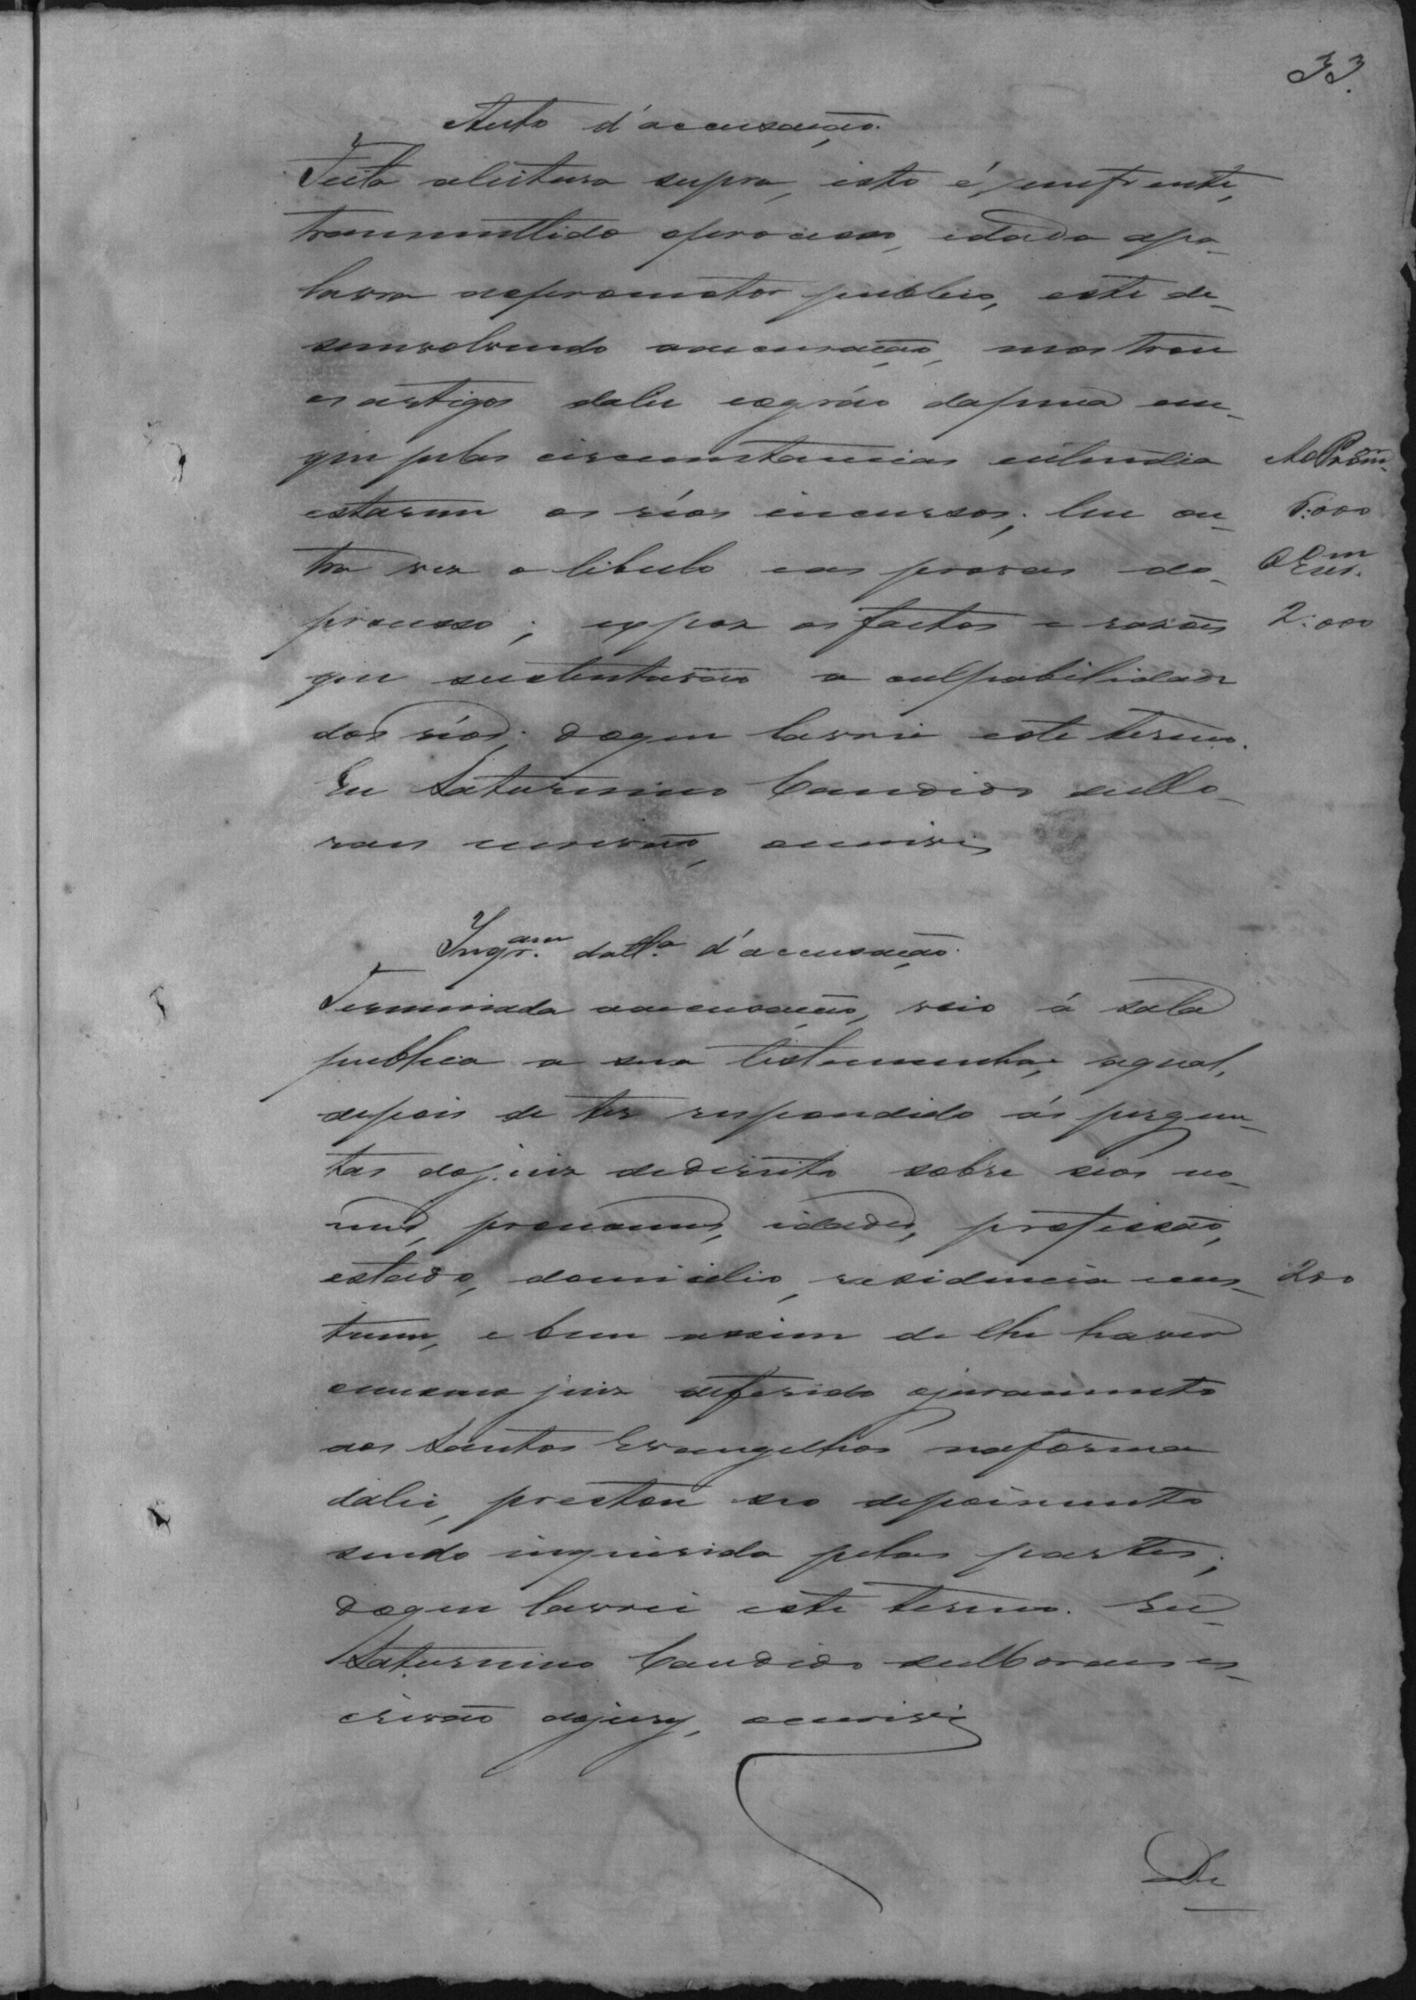 33.
Auto d'accusação.
Feita aleitura supra, isto é, emfrente,
transmittido oprocesso, edada apa-
lavra aopromotor publico, este de-
senvolvendo aaccusação, mostrou
os artigos dalei eográo dapena em-
que pelas circumstancias entendia
estarem os réos incursos; leu ou-
tra vez o libello eas provas do-
processo; expoz os factos e rasões
que sustentavão a culpabilidade
dos réos; doque lavrei este termo.
Eu Saturnino Candido de Mo-
raes escrivão, oescrivi
Ao Prom.
6:000
2:000
Inqr.am da tt.a d'accusação.
Terminada aaccusação, veio á sala
publica a sua testemunha, aqual,
depois de ter respondido ás pergun-
tas dojuiz dedireito sobre seos no-
mes, pronomes, idades, profissão,
estado, domicilio, residencia cos-
tume, e bem assim de lhe haver
omesmo juiz deferido ojuramento
aos Santos Evangelhos naforma
dalei, prestou seo depoimento
sendo inquirida pelas partes;
doque lavrei este termo. Eu
Saturnino Candido de Moraes es-
crivão dojury, oescrivi
200
De